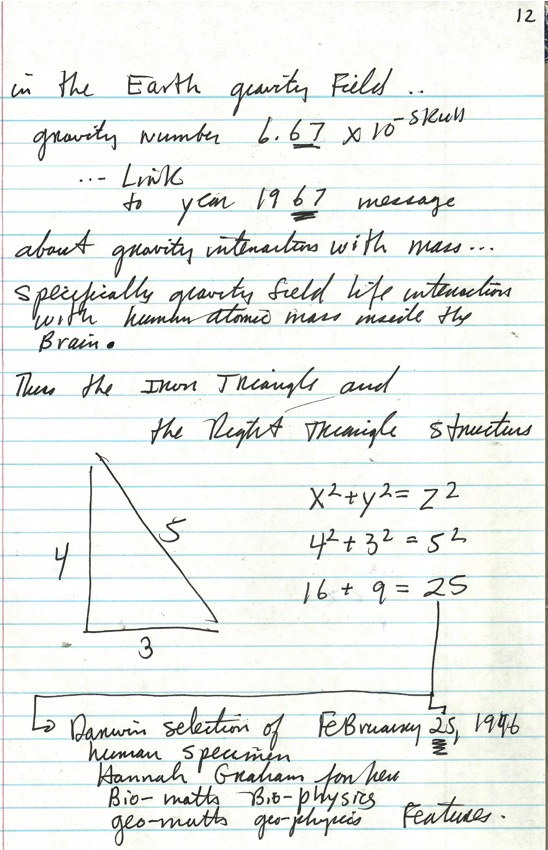 12
in the Earth gravity Field ..
gravity number 6.67 x 10^-skull
... Link
to year 1967 message
about gravity interaction with mass...
specifically gravity field life interaction
with human atomic mass inside the
Brain.
Thus the Iron Triangle and
the Right Triangle structure
4 5 3
x² + y² = z²
4² + 3² = 5²
16 + 9 = 25
Darwin selection of February 25, 1996
human specimen
Hannah Graham for her
Bio-maths Bio-physics
geo-maths geo-physics Features.